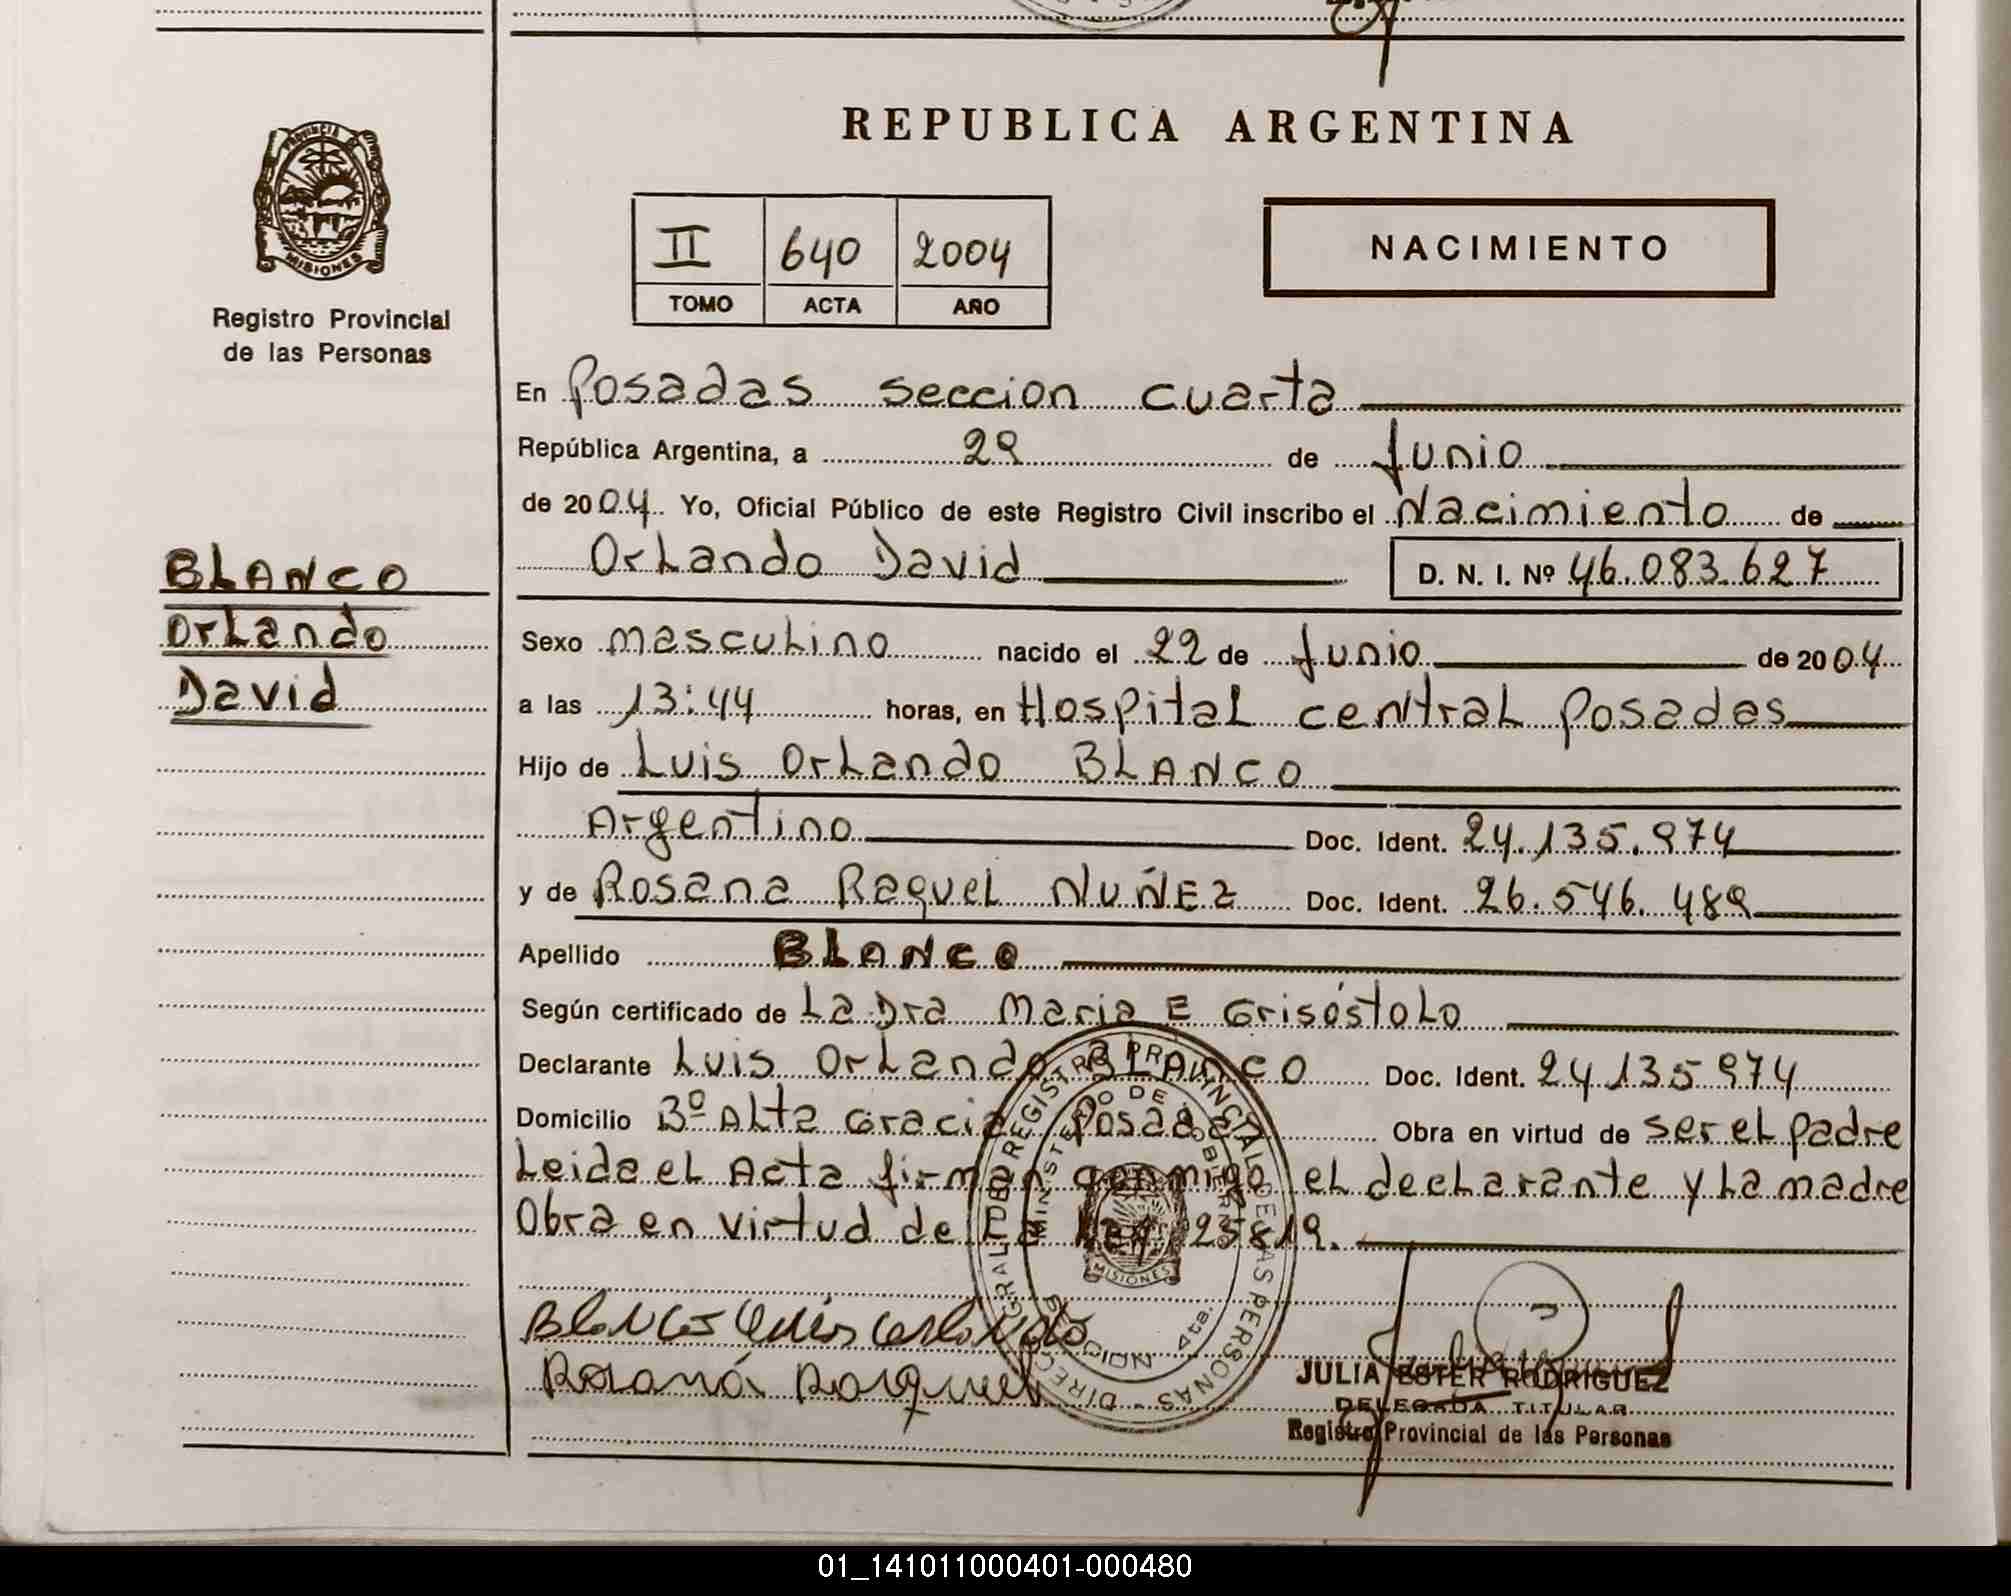 PROVINCIA DE
MISIONES
Registro Provincial
de las Personas
BLANCO
Orlando
David
REPUBLICA ARGENTINA
II 640 2004
TOMO ACTA AÑO
NACIMIENTO
En Posadas seccion cuarta
República Argentina, a 29 de Junio
de 2004 Yo, Oficial Público de este Registro Civil inscribo el Nacimiento de
Orlando David D. N. I. Nº 46.083.627
Sexo masculino nacido el 22 de Junio de 2004
a las 13:44 horas, en Hospital central Posadas
Hijo de Luis Orlando BLANCO
Argentino Doc. Ident. 24.135.974
y de Rosana Raquel NUÑEZ Doc. Ident. 26.546.489
Apellido BLANCO
Según certificado de La Dra Maria E Grisóstolo
Declarante Luis Orlando BLANCO Doc. Ident. 24.135 974
Domicilio Bº Alta Gracia Posadas Obra en virtud de ser el padre
Leida el Acta firman conmigo el declarante y la madre
Obra en virtud de La Ley 25819.
DIRECC. GRAL. DEL REGISTRO PROVINCIAL DE LAS PERSONAS -
MINISTERIO DE GOBIERNO
MISIONES
SECCION 4ta.
Blanco Luis Orlando
Rosana Raquel
JULIA ESTER RODRIGUEZ
DELEGADA TITULAR
Registro Provincial de las Personas
01_141011000401-000480